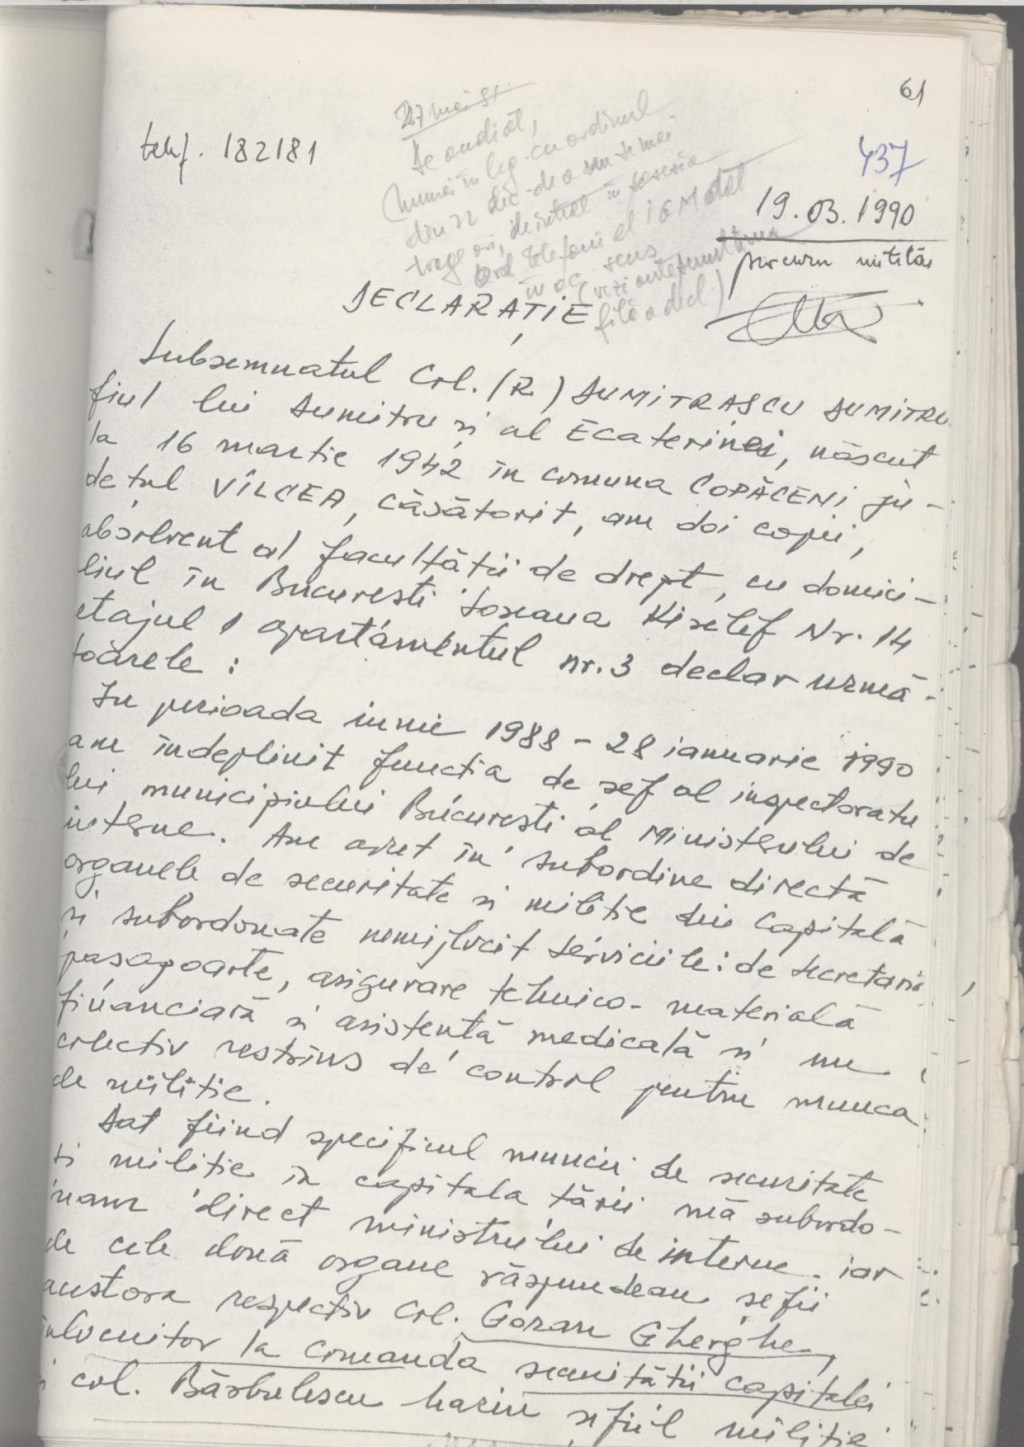 61
telef. 182181
437
19.03.1990
procuror militar
27 mai 91.
De audiat,
numai în leg. cu ordinul
din 22 dec. de a nu se mai
trage
ord. telefonic al IGM dat
în ac. sens
DECLARAȚIE
Subsemnatul Col. (R) DUMITRAȘCU DUMITRU
fiul lui Dumitru și al Ecaterinei, născut
la 16 martie 1942 în comuna COPĂCENI ju-
dețul VÎLCEA, căsătorit, am doi copii,
absolvent al facultății de drept, cu domici-
liul în București Șoseaua Kiselef Nr. 14
etajul 1 apartamentul nr. 3 declar urmă-
toarele :
In perioada iunie 1988 - 28 ianuarie 1990
am îndeplinit funcția de șef al inspectoratu
lui municipiului București al Ministerului de
interne. Am avut în subordine directă
organele de securitate și miliție din Capitală
și subordonate nemijlocit serviciile: de secretari
pașapoarte, asigurare tehnico-materială
financiară și asistență medicală și un
colectiv restrîns de control pentru munca
de miliție.
Dat fiind specificul muncii de securitate
și miliție în capitala țării mă subordo-
nam direct ministrului de interne. iar
de cele două organe răspundeau șefii
acestora respectiv Col. Goran Gherghe,
înlocuitor la comanda securității capitalei
și col. Bărbulescu Marin șeful miliție